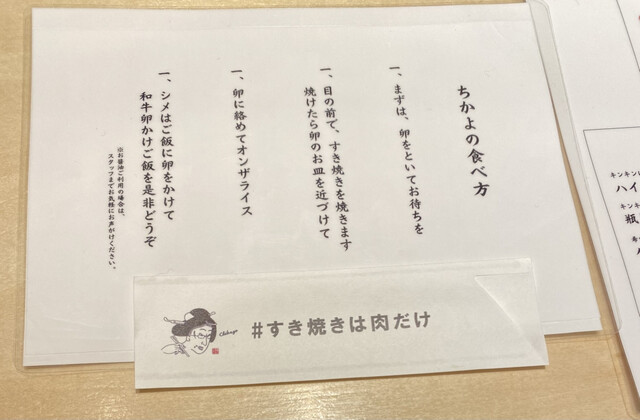 ちかよの食べ方
一、まずは、卵をといてお待ちを
一、目の前で、すき焼きを焼きます
焼けたら卵のお皿を近づけて
一、卵に絡めてオンザライス
一、シメはご飯に卵をかけて
和牛卵かけご飯を是非どうぞ
※お醤油ご利用の場合は、
スタッフまでお気軽にお声がけください。
#すき焼きは肉だけ
キンキン
ハイ
キンキン
瓶